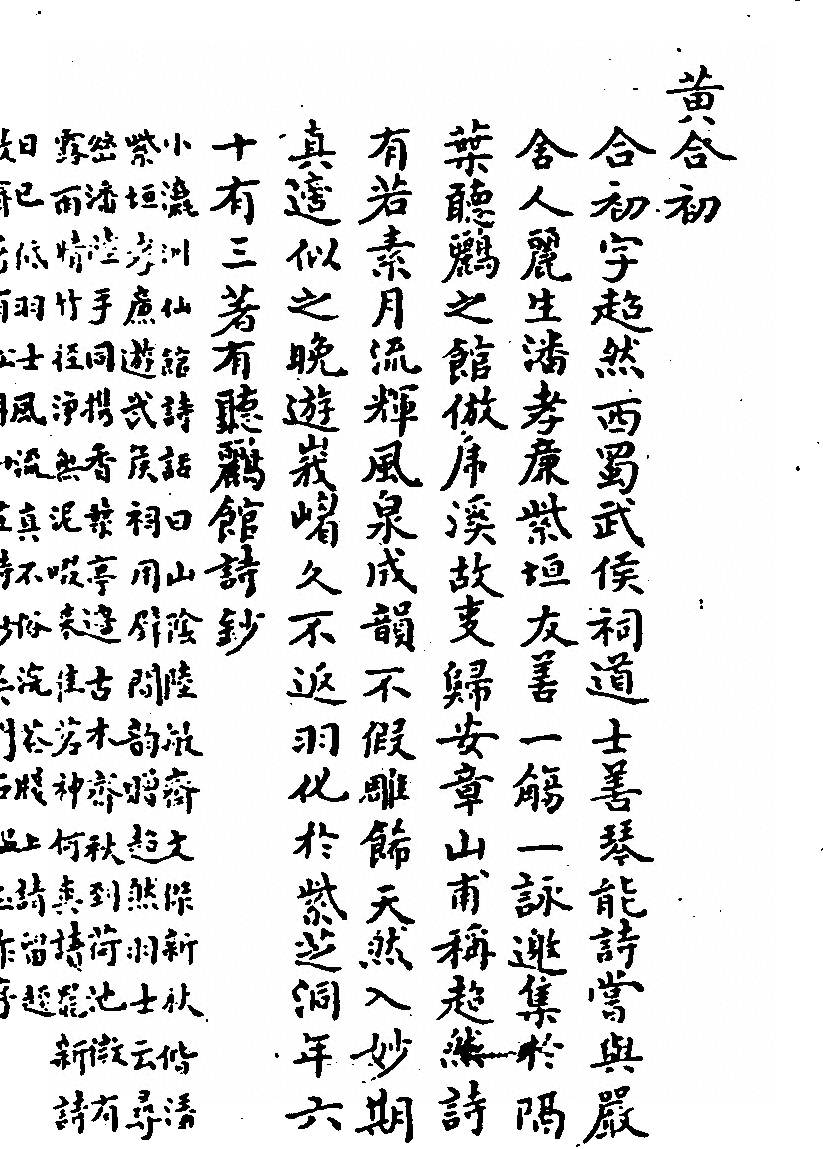 黄合初
合初字超然西蜀武侯祠道士善琴能詩嘗與嚴
舍人麗生潘孝廉紫垣友善一觴一詠邀集於隔
葉聽鸝之館倣虎溪故事歸安章山甫稱超然詩
有若素月流輝風泉成韻不假雕飾天然入妙期
真邃似之晚遊峩嵋久不返羽化於紫芝洞年六
十有三著有聽鸝館詩鈔
小瀛洲仙館詩話曰山陰陸敬齋文傑新秋偕潘
紫垣孝廉遊武侯祠用辟間韵贈超然羽士云尋
幽潘陸手同携香葉亭邊古木齊秋到荷池微有
露雨晴竹徑淨無泥啜來佳茗神何爽讀罷新詩
日已低羽士風流真不俗浣花牋上請留題